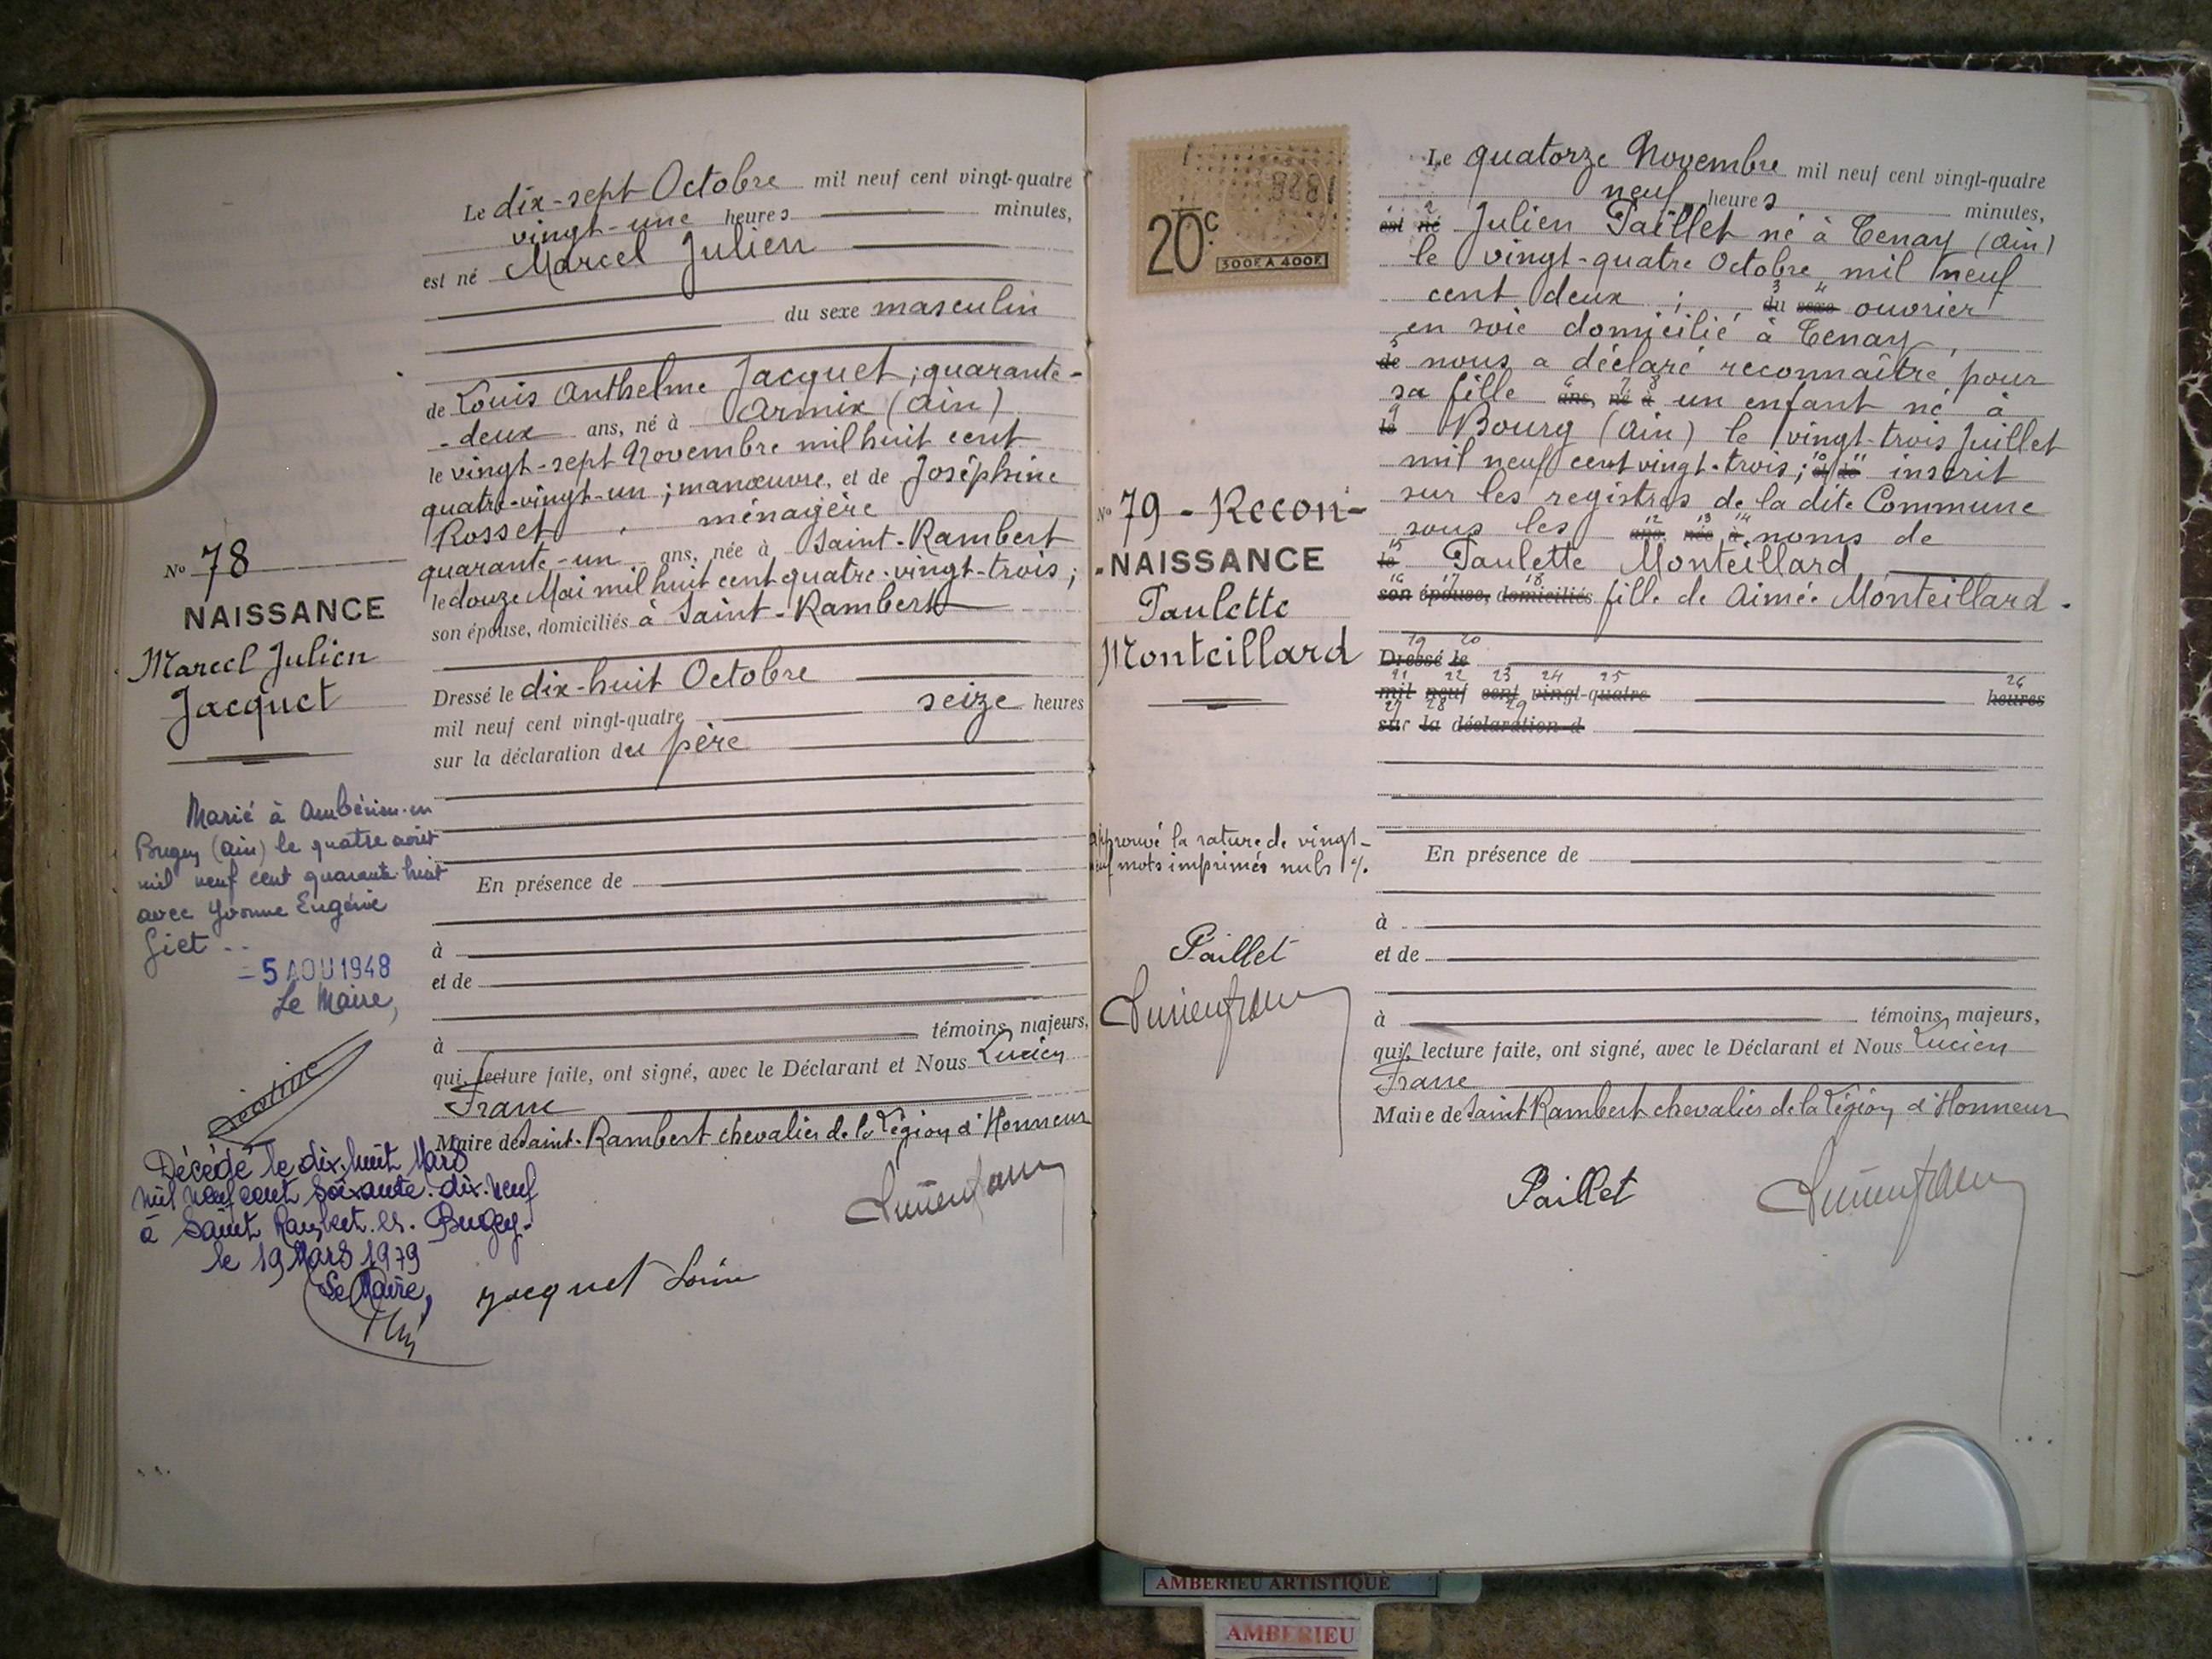 Le dix-sept Octobre mil neuf cent vingt-quatre
vingt-une heures minutes,
est né Marcel Julien
du sexe masculin
de Louis Anthelme Jacquet ; quarante-
-deux ans, né à Armix (Ain)
le vingt-sept Novembre mil huit cent
quatre-vingt-un ; manœuvre, et de Joséphine
Rosset, ménagère
quarante-un ans, née à Saint-Rambert
le douze Mai mil huit cent quatre-vingt-trois ;
son épouse, domiciliés à Saint-Rambert
Dressé le dix-huit Octobre
mil neuf cent vingt-quatre seize heures
sur la déclaration du père
En présence de
à
et de
à témoins majeurs,
qui, lecture faite, ont signé, avec le Déclarant et Nous Lucien
Franc
Maire de Saint-Rambert chevalier de la Légion d'Honneur
Jacquet Louis
No 78
NAISSANCE
Marcel Julien
Jacquet
Marié à Ambérieu-en
Bugey (Ain) le quatre août
mil neuf cent quarante huit
avec Yvonne Eugénie
Giet
- 5 AOU 1948
Le Maire,
Décédé le dix-huit Mars
mil neuf cent soixante-dix-neuf
à Saint Rambert-en-Bugey-
le 19 Mars 1979
Le Maire,
20c
300F A 400F
No 79 - Recon-
-NAISSANCE
Paulette
Monteillard
Approuvé la rature de vingt-
neuf mots imprimés nuls
Paillet
Le quatorze Novembre mil neuf cent vingt-quatre
neuf heures minutes,
1 2
est né Julien Paillet né à Tenay (Ain)
le vingt-quatre Octobre mil neuf
3 4
cent deux ; du sexe ouvrier
en soie domicilié à Tenay,
5
de nous a déclaré reconnaître pour
6 7 8
sa fille ans, né à un enfant né à
9
le Bourg (Ain) le vingt-trois Juillet
10 11
mil neuf cent vingt-trois ; et de inscrit
sur les registres de la dite Commune
12 13 14
sous les ans, née à noms de
15
le Paulette Monteillard
16 17 18
son épouse, domiciliés fille de Aimée Monteillard.
19 20
Dressé le
21 22 23 24 25 26
mil neuf cent vingt-quatre heures
27 28 29
sur la déclaration d
En présence de
à
et de
à témoins majeurs,
qui, lecture faite, ont signé, avec le Déclarant et Nous Lucien
Franc
Maire de Saint Rambert chevalier de la Légion d'Honneur
Paillet
AMBERIEU ARTISTIQUE
AMBERIEU